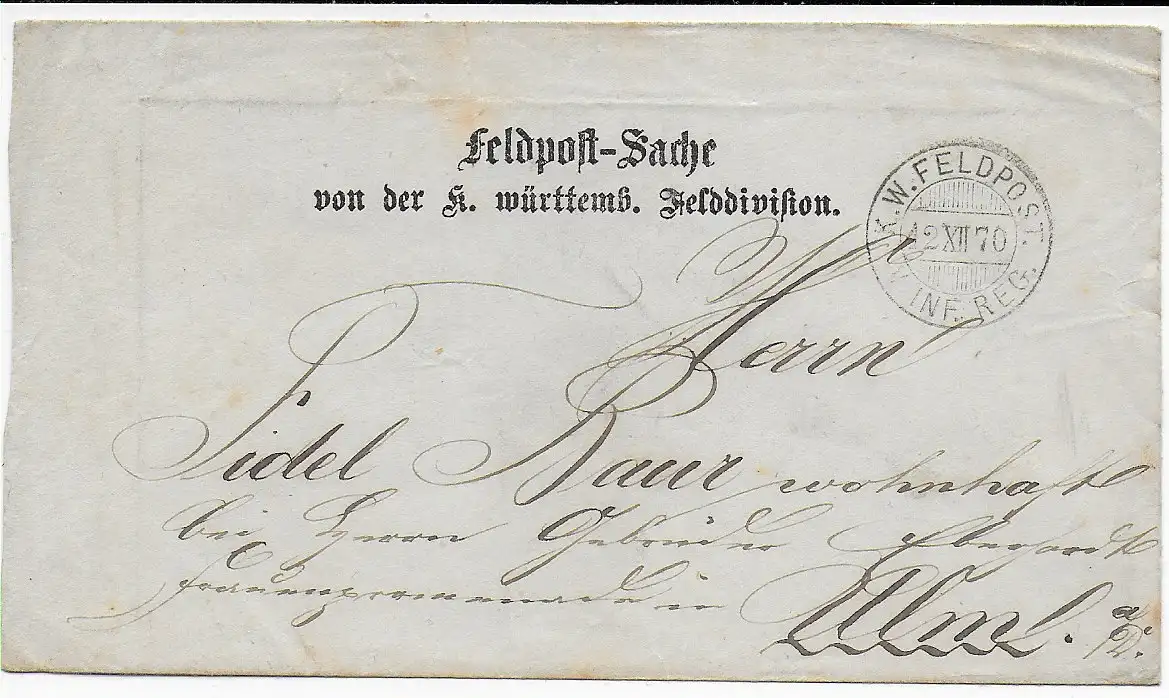 Feldpost-Sache
von der K. württemb. Felddivision.
K. W. FELDPOST.
12 XII 70
INF. REG.
Herrn
Fidel Baur wohnhaft
bei Herrn Gebrüder Eberhardt
Frauenpromenade in Ulm. a/D.